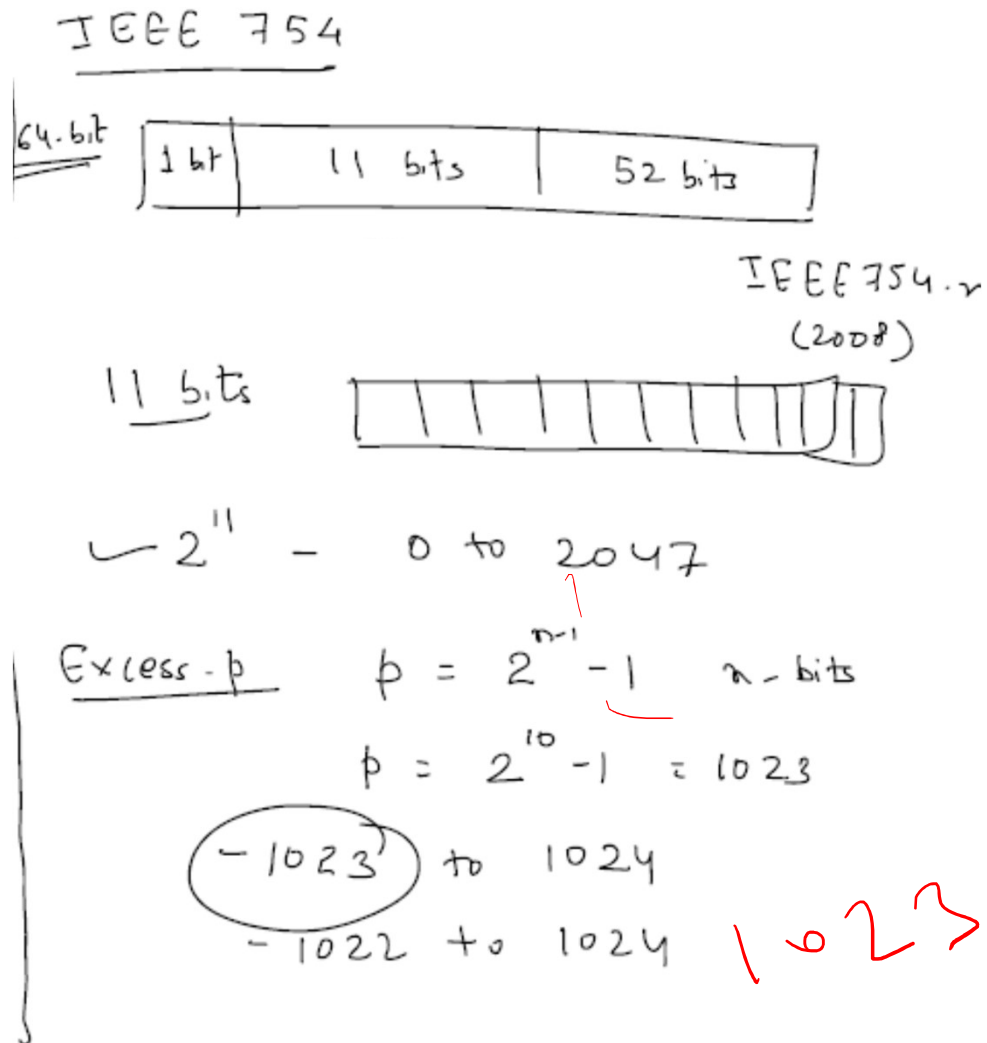 IEEE 754
64-bit
1 bit 11 bits 52 bits
IEEE 754.r
(2008)
11 bits
2^11 - 0 to 2047
Excess-p p = 2^n-1 - 1 n-bits
p = 2^10 - 1 = 1023
-1023 to 1024
-1022 to 1024 1023